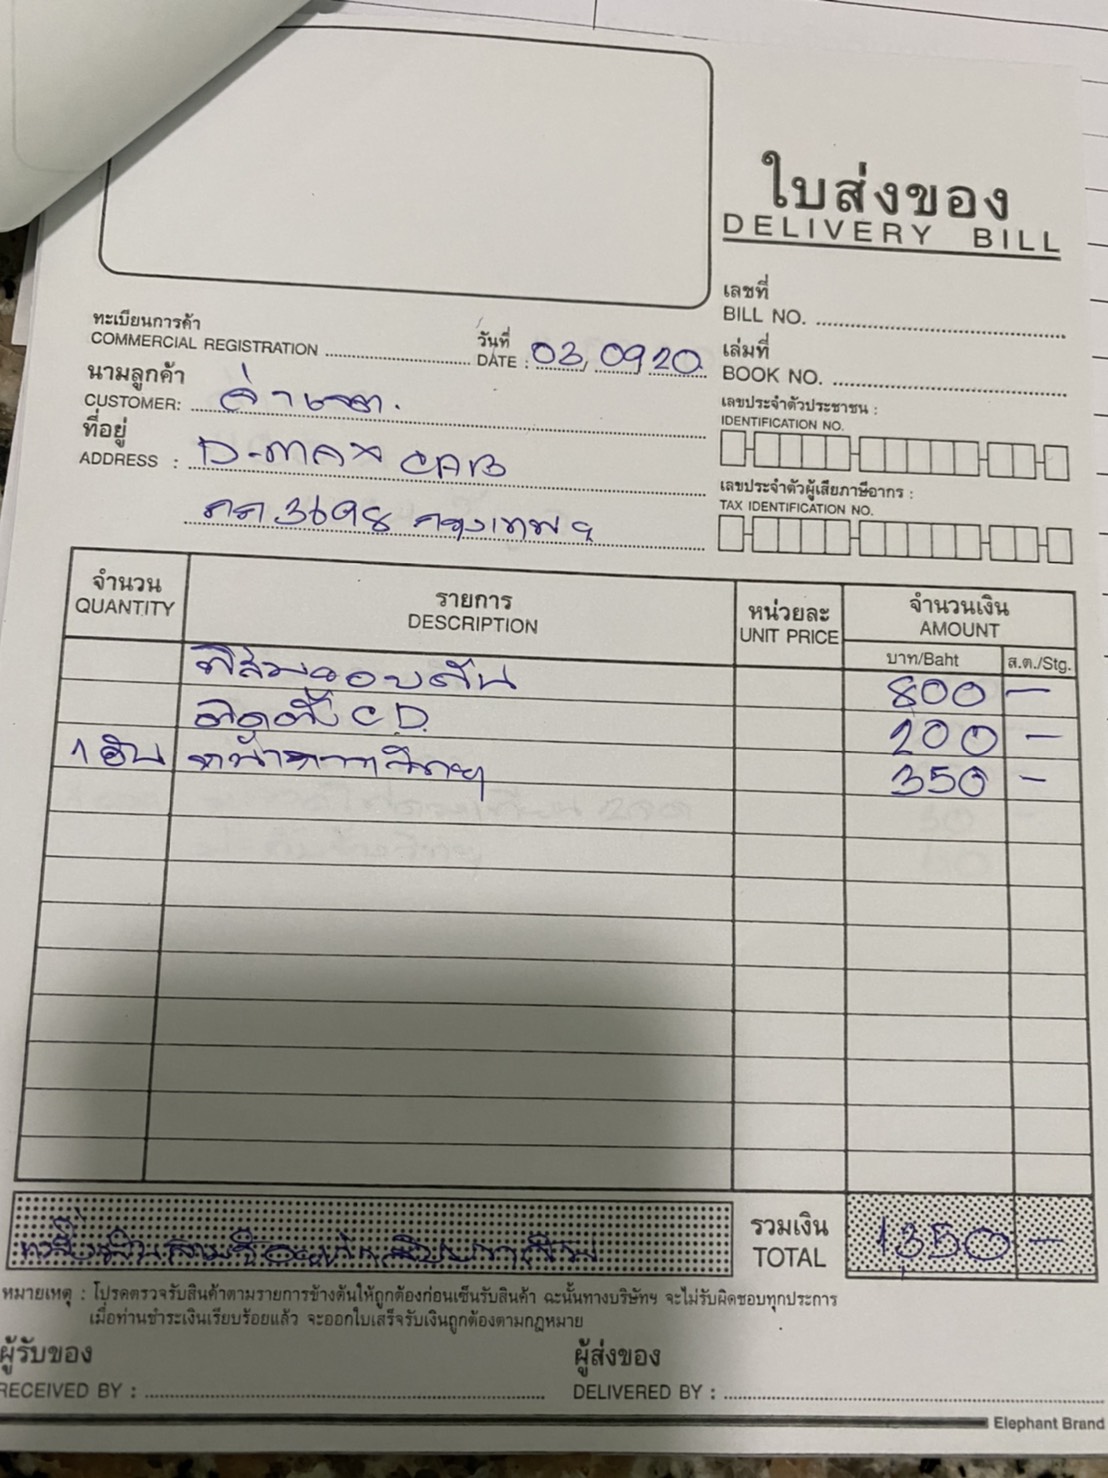 ใบส่งของ
DELIVERY BILL
เลขที่
BILL NO.
ทะเบียนการค้า
COMMERCIAL REGISTRATION
วันที่
DATE : 03, 09 20
เล่มที่
BOOK NO.
นามลูกค้า
CUSTOMER:
เลขประจำตัวประชาชน :
IDENTIFICATION NO.
ที่อยู่
ADDRESS : D-MAX CAB
3698 กรุงเทพฯ
เลขประจำตัวผู้เสียภาษีอากร :
TAX IDENTIFICATION NO.
จำนวน รายการ หน่วยละ จำนวนเงิน
QUANTITY DESCRIPTION UNIT PRICE AMOUNT
บาท/Baht ส.ต./Stg.
800 -
ติดตั้ง CD 200 -
1 อัน 350 -
รวมเงิน
TOTAL 1,350 -
หมายเหตุ : โปรดตรวจรับสินค้าตามรายการข้างต้นให้ถูกต้องก่อนเซ็นรับสินค้า ฉะนั้นทางบริษัทฯ จะไม่รับผิดชอบทุกประการ
เมื่อท่านชำระเงินเรียบร้อยแล้ว จะออกใบเสร็จรับเงินถูกต้องตามกฎหมาย
ผู้รับของ
RECEIVED BY :
ผู้ส่งของ
DELIVERED BY :
Elephant Brand